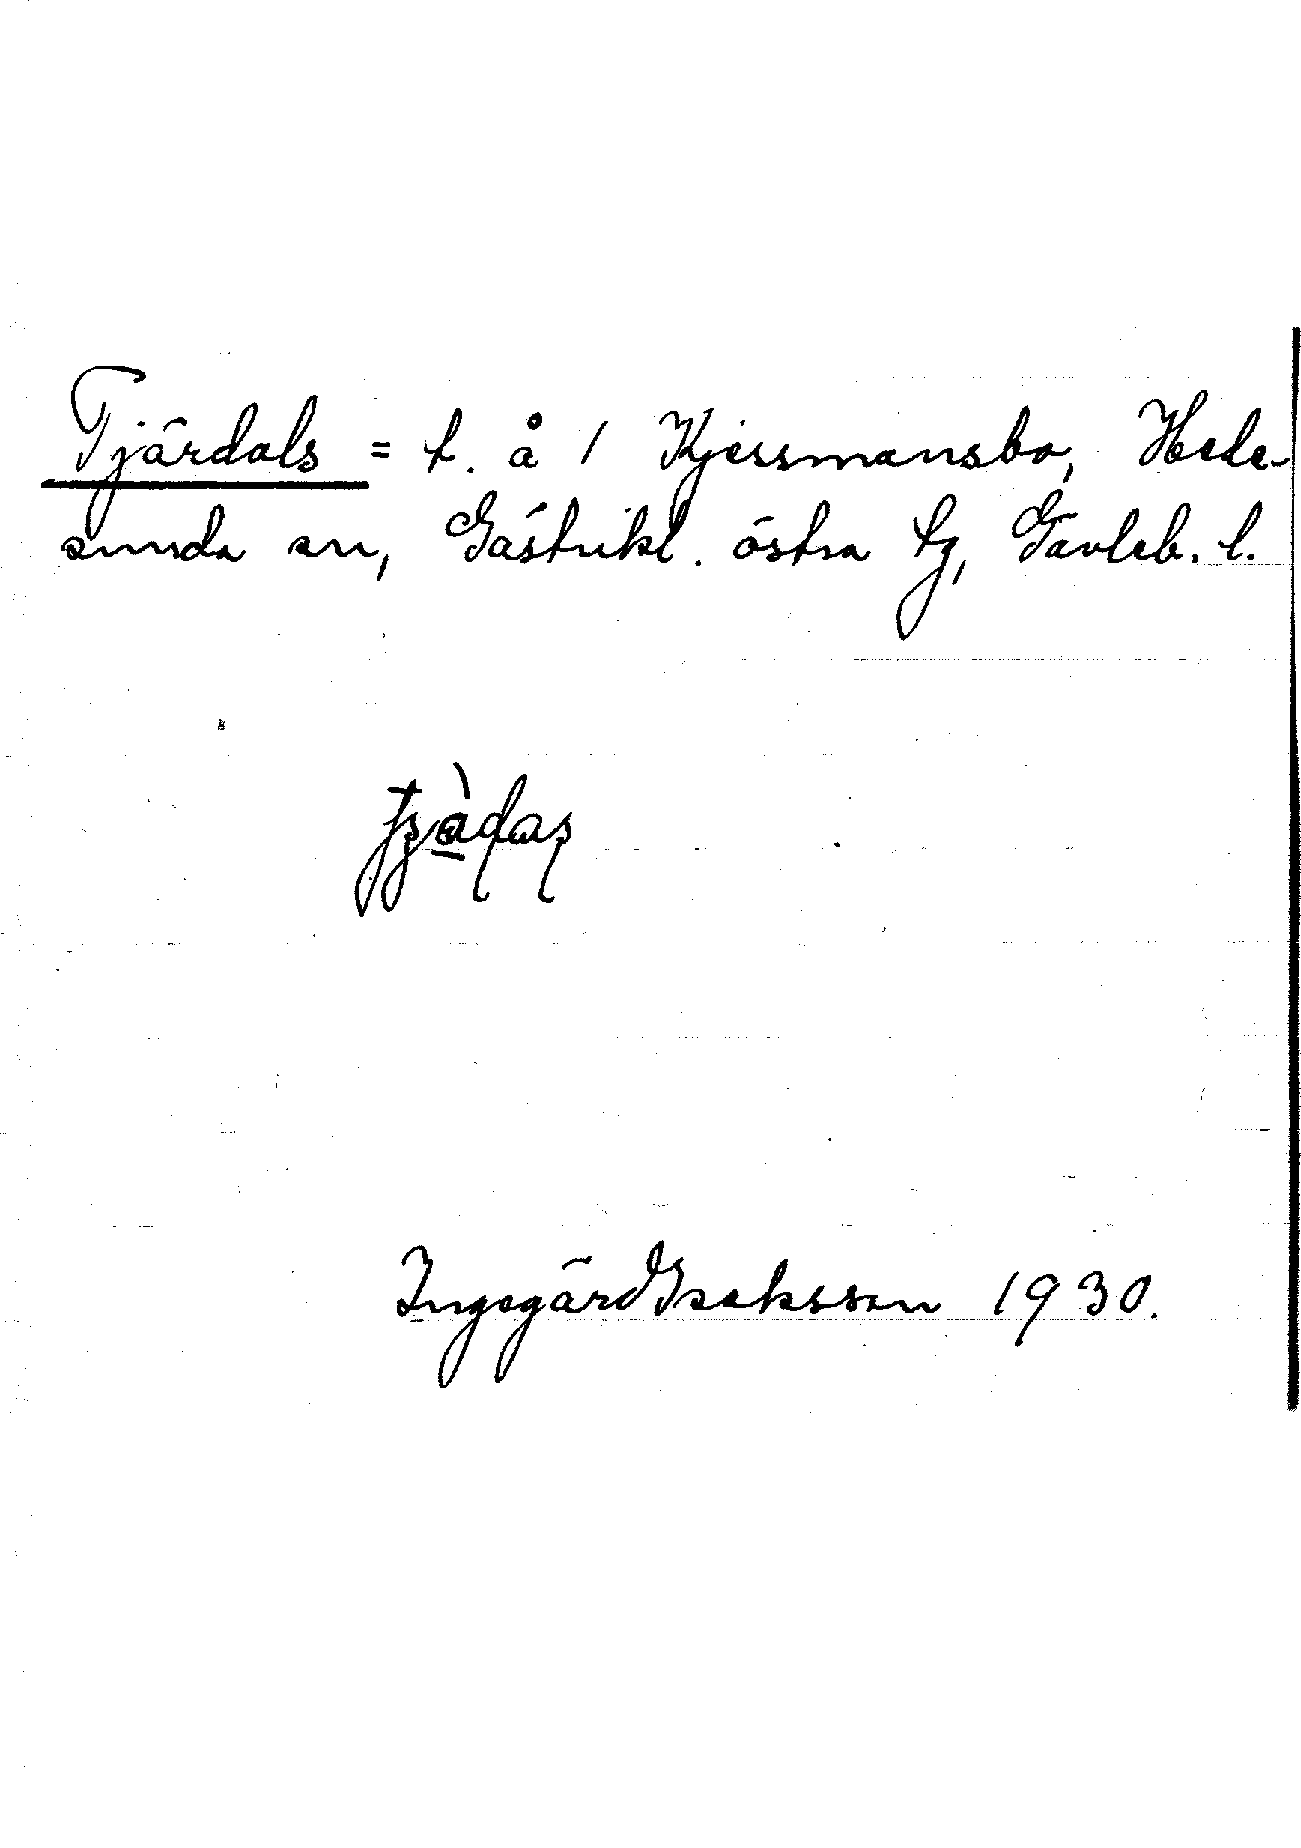 Tjärdals = t. å 1 Kjessmansbo, Hede-
sunda sn, Gästrikl. östra tg, Gävleb. l.
Ingegärd Isaksson 1930.